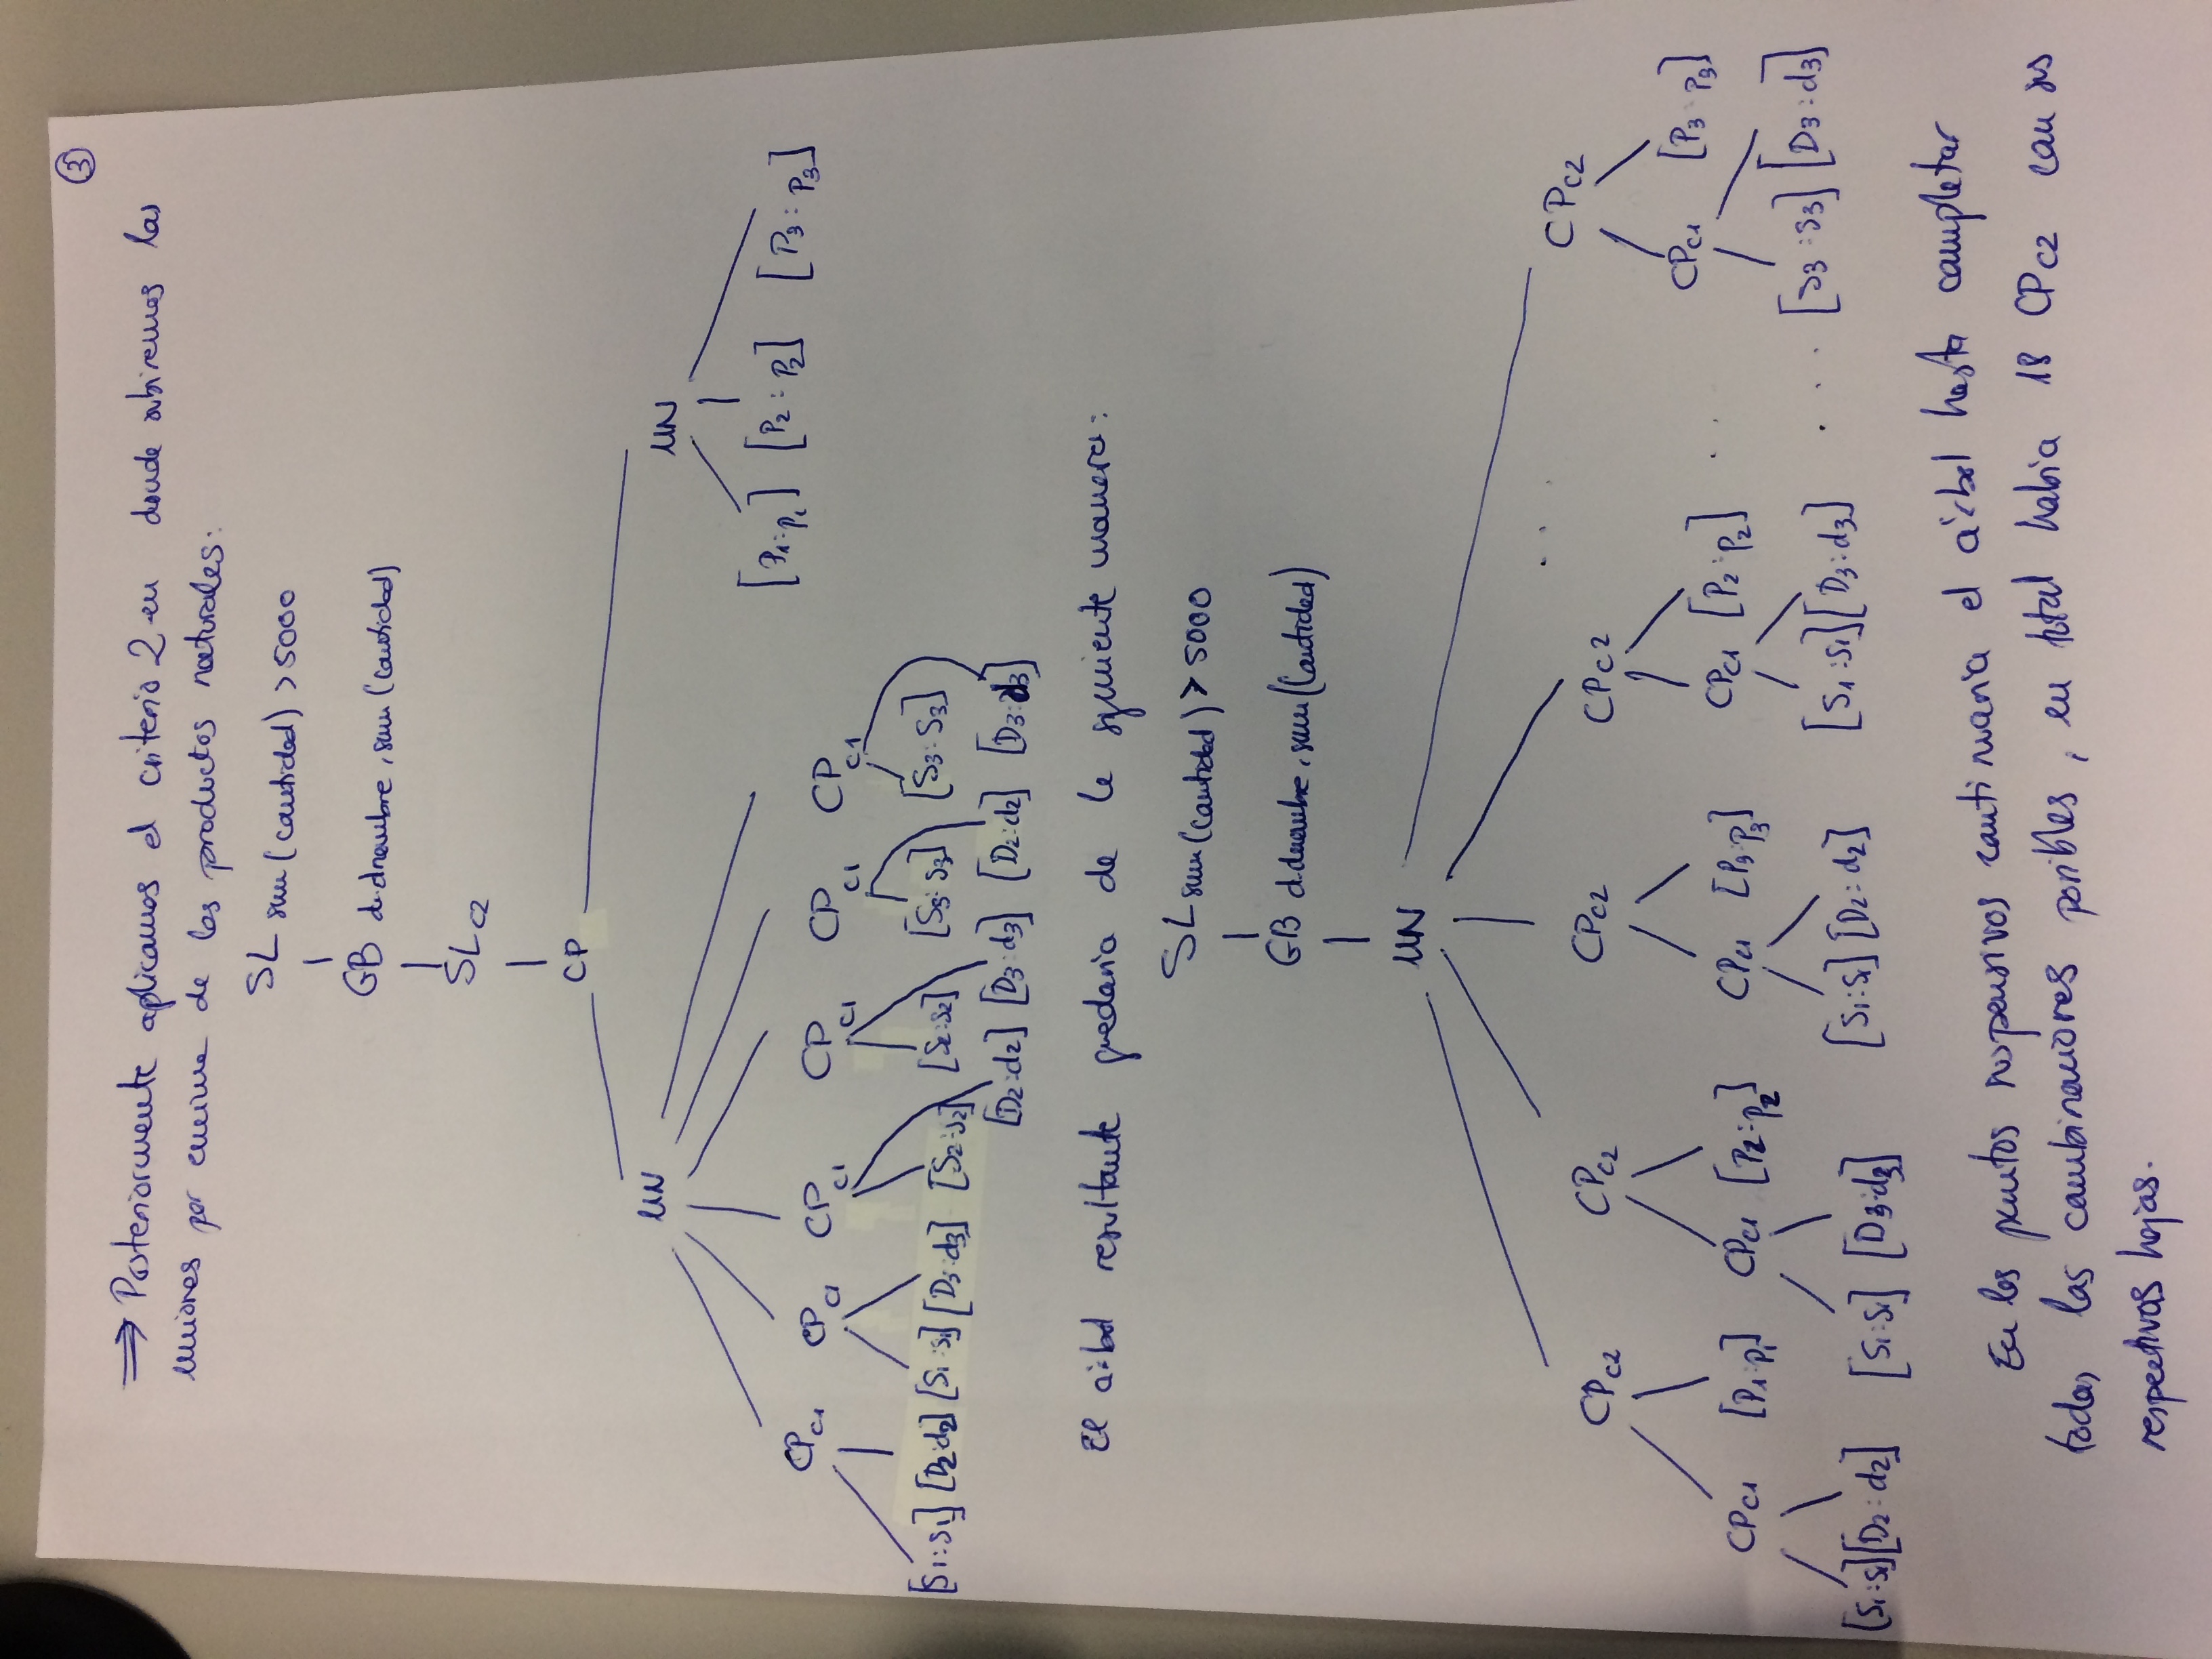 3
⇒ Posteriormente aplicamos el criterio 2 en donde subiremos las
uniones por encima de los productos naturales:
SL sum(cantidad) > 5000
GB d.dnombre, sum(cantidad)
SL C2
CP
UN UN
[P1:p1] [P2:p2] [P3:p3]
CP C1 CP C1 CP C1 CP C1 CP C1 CP C1
[S1:s1] [D2:d2] [S1:s1] [D3:d3] [S2:s2] [S2:s2] [S3:s3] [S3:s3]
[D2:d2] [D3:d3] [D2:d2] [D3:d3]
El árbol resultante quedaría de la siguiente manera:
SL sum(cantidad) > 5000
GB d.dnombre, sum(Cantidad)
UN
CP C2 CP C2 CP C2 CP C2 .... CP C2
CP C1 [P1:p1] CP C1 [P2:p2] CP C1 [P3:p3] CP C1 [P2:p2] .. CP C1 [P3:p3]
[S1:s1] [D2:d2] [S1:s1] [D3:d3] [S1:s1] [D2:d2] [S1:s1] [D3:d3] .... [S3:s3] [D3:d3]
En los puntos suspensivos continuaría el árbol hasta completar
todas las combinaciones posibles, en total había 18 CP C2 con sus
respectivos hojas.